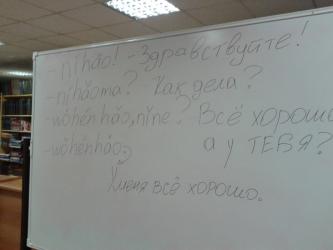 - nǐhǎo! - Здравствуйте!
- nǐhǎoma? Как дела?
- wǒhěnhǎo, nǐne? Всё хорошо,
- wǒhěnhǎo, а у ТЕБЯ?
У меня всё хорошо.